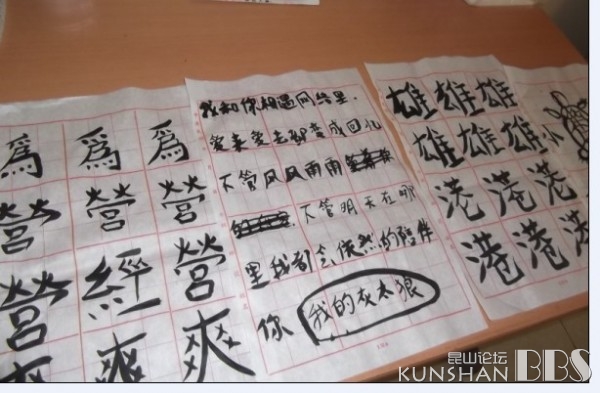 為 為 為
營 營 營
營 經 營
爽 爽
我和你相遇网络里.
爱来爱去都变成回忆
不管风风雨雨
不管明天在哪
里我都会然的陪伴
你 我的灰太狼
雄 雄 雄
雄 雄 雄
港 港 港
港 港 港
小
昆山论坛
KUNSHAN BBS